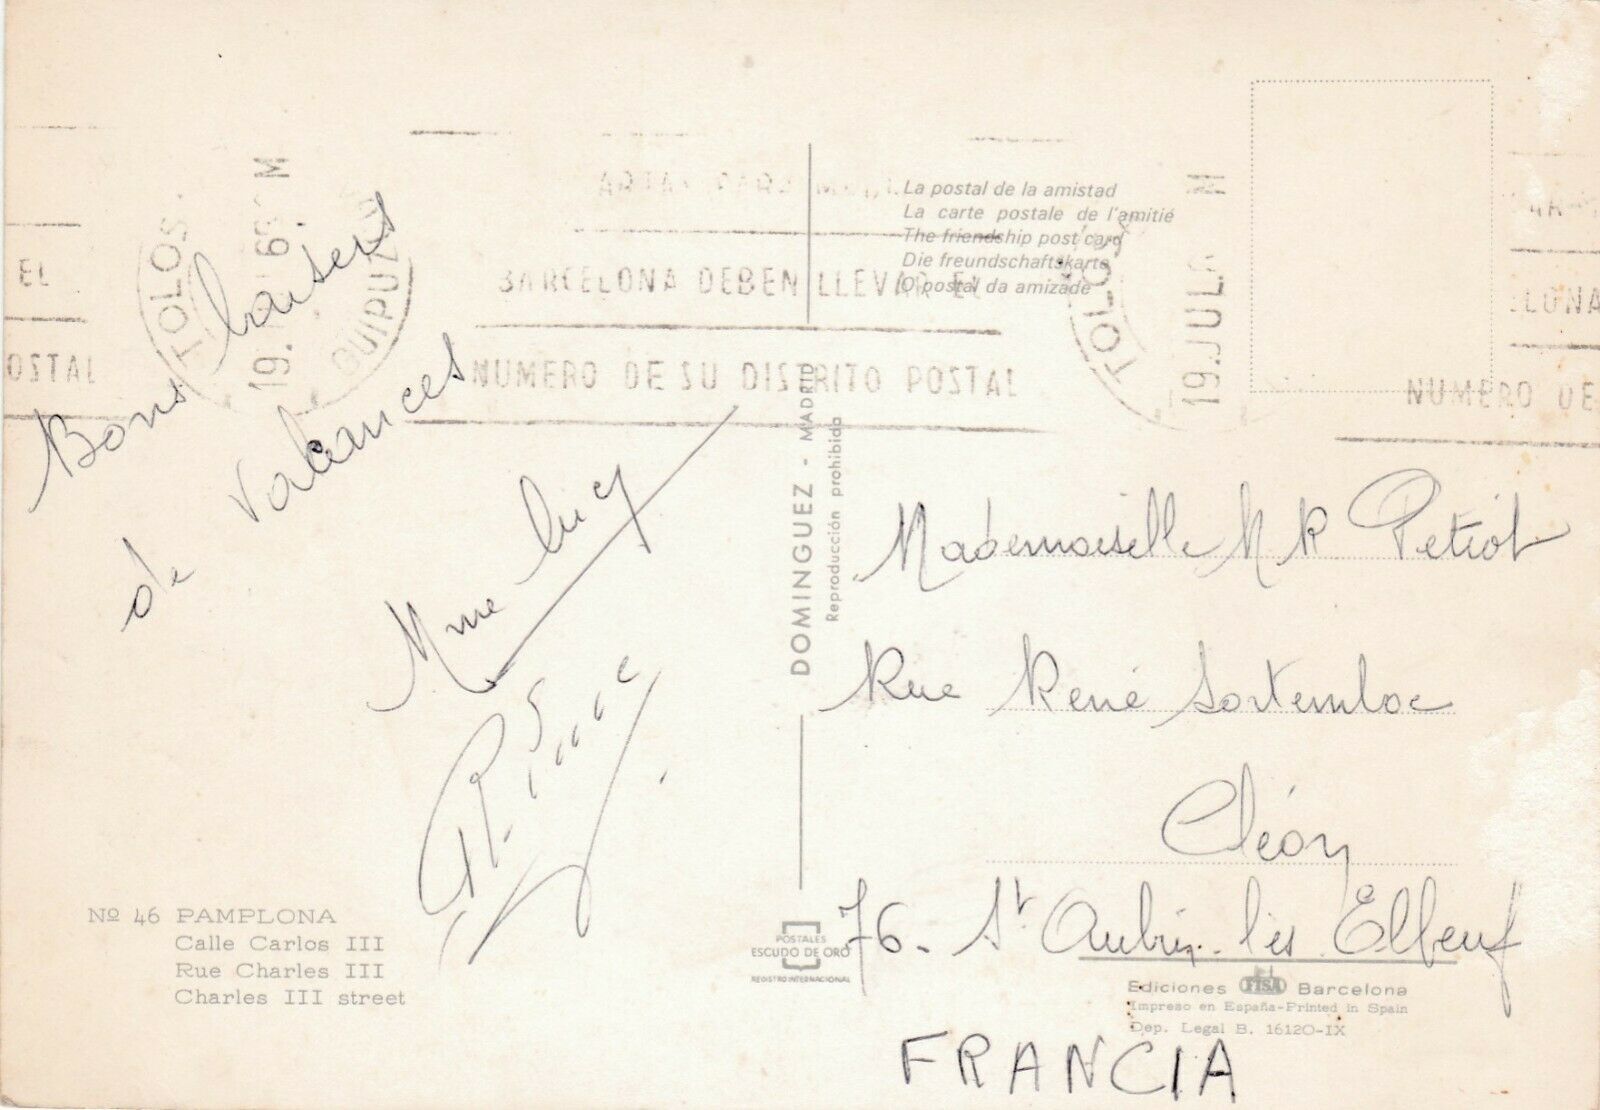 Bons baisers
de vacances
Mme Lucy
Nº 46 PAMPLONA
Calle Carlos III
Rue Charles III
Charles III street
TOLOS
GUIPUZ
19.
M
EL
OSTAL
BARCELONA DEBEN LLEVAR EL
NUMERO DE SU DISTRITO POSTAL
DOMINGUEZ - MADRID
Reproducción prohibida
POSTALES
ESCUDO DE ORO
REGISTRO INTERNACIONAL
La postal de la amistad
La carte postale de l'amitié
The friendship post card
Die freundschaftskarte
O postal da amizade
TOLO
19.JUL
M
LONA
NUMERO DE
Mademoiselle
Petiot
Rue René
Cléon
76- St Aubin-lès Elbeuf
FRANCIA
Ediciones FISA Barcelona
Impreso en España-Printed in Spain
Dep. Legal B. 16120-IX